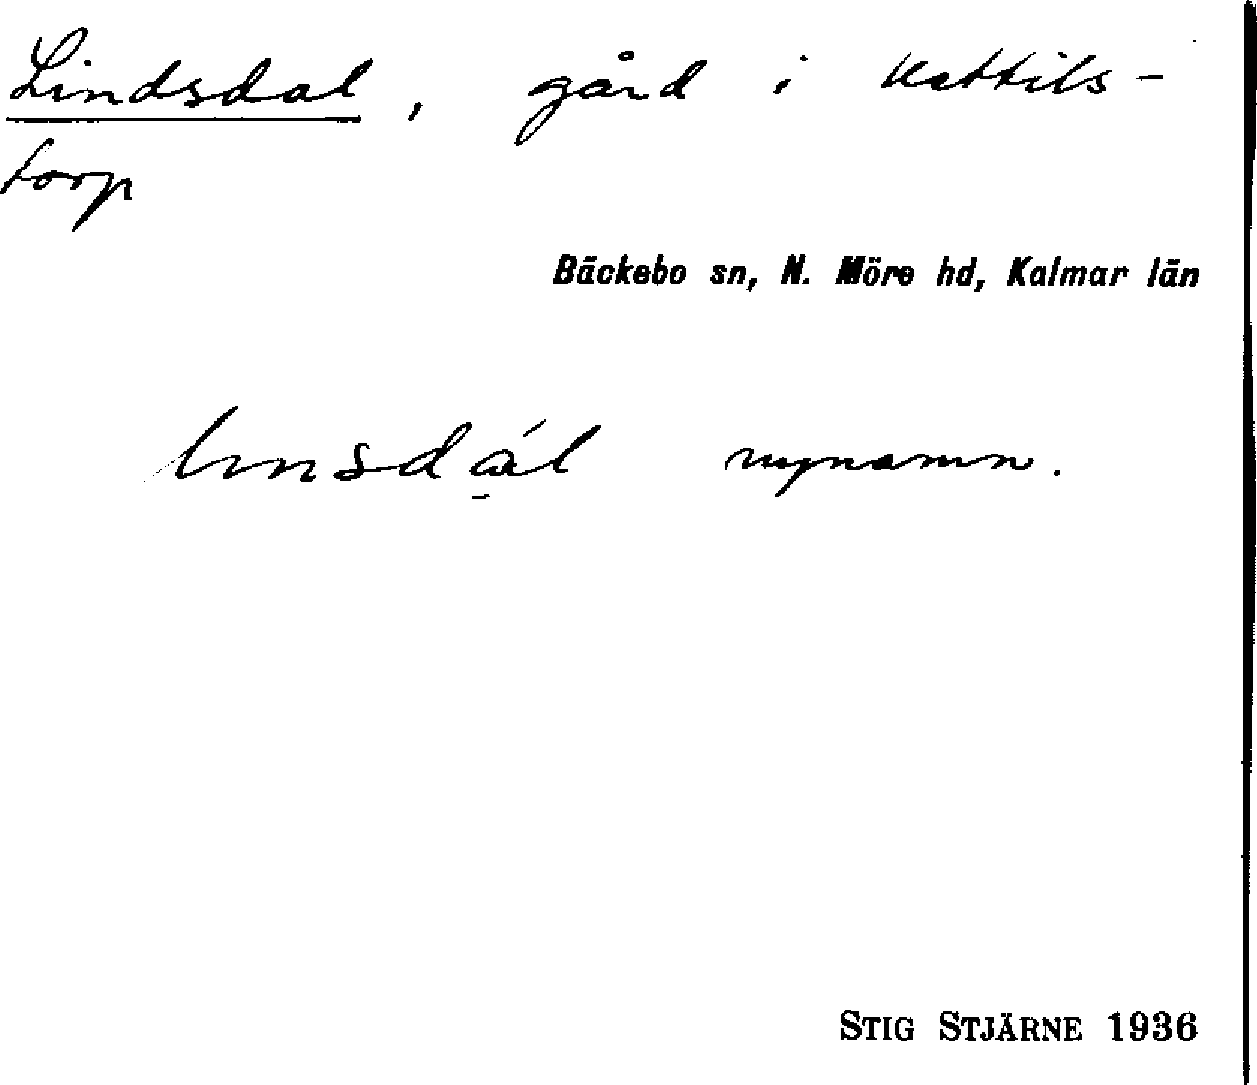 Lindsdal, gård i Kettils-
torp
Bäckebo sn, N. Möre hd, Kalmar län
linsdál nynamn.
STIG STJÄRNE 1936